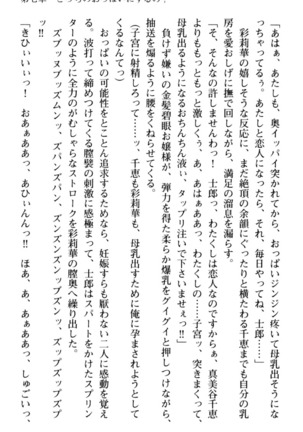 「あはぁ、あたしも、奥イッパイ突かれてから、おっぱいジンジン疼いて母乳出そうにな
っちゃってるぅ。あたしと恋人になったら、それ、毎日やってね、士郎……」
彩莉華の嬉しそうな反応に、まだ絶頂の余韻にぐったりと横たわる千恵までも自分の乳
房を愛おしげに撫で回しながら、満足の溜息を漏らす。
「そ、そんなの許しませんわっ！　士郎っ、わたくしは恋人なのですからぁ、真美谷千恵
よりももっともっと激しくぅ、あ、あはぁっ、わたくしの……子宮ッ、突きまくって、
母乳出るようになるおちんちん液い、タップリ注いで下さいませぇっ‼」
負けず嫌いの金髪碧眼お嬢様が、弾力を得た柔らか爆乳をグイグイと押しつけながら、
抽送を煽るように腰をくねらせてくる。
（子宮に射精しろって……ッ、千恵も彩莉華も、母乳出すために俺に孕まされようとして
くるなんてっ）
おっぱいの可能性をとことん追求するためなら、妊娠すらも厭わない二人に感動を覚え
る。波打って締めつけてくる膣襞の刺激に感極まって、士郎はスパートをかけたスプリン
ターのように、全力のがむしゃらなストロークを彩莉華の膣奥へ繰り出した。